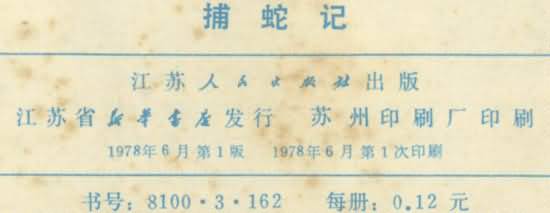 捕蛇记
江苏人民出版社出版
江苏省新华书店发行 苏州印刷厂印刷
1978年6月第1版 1978年6月第1次印刷
书号：8100·3·162 每册：0.12元